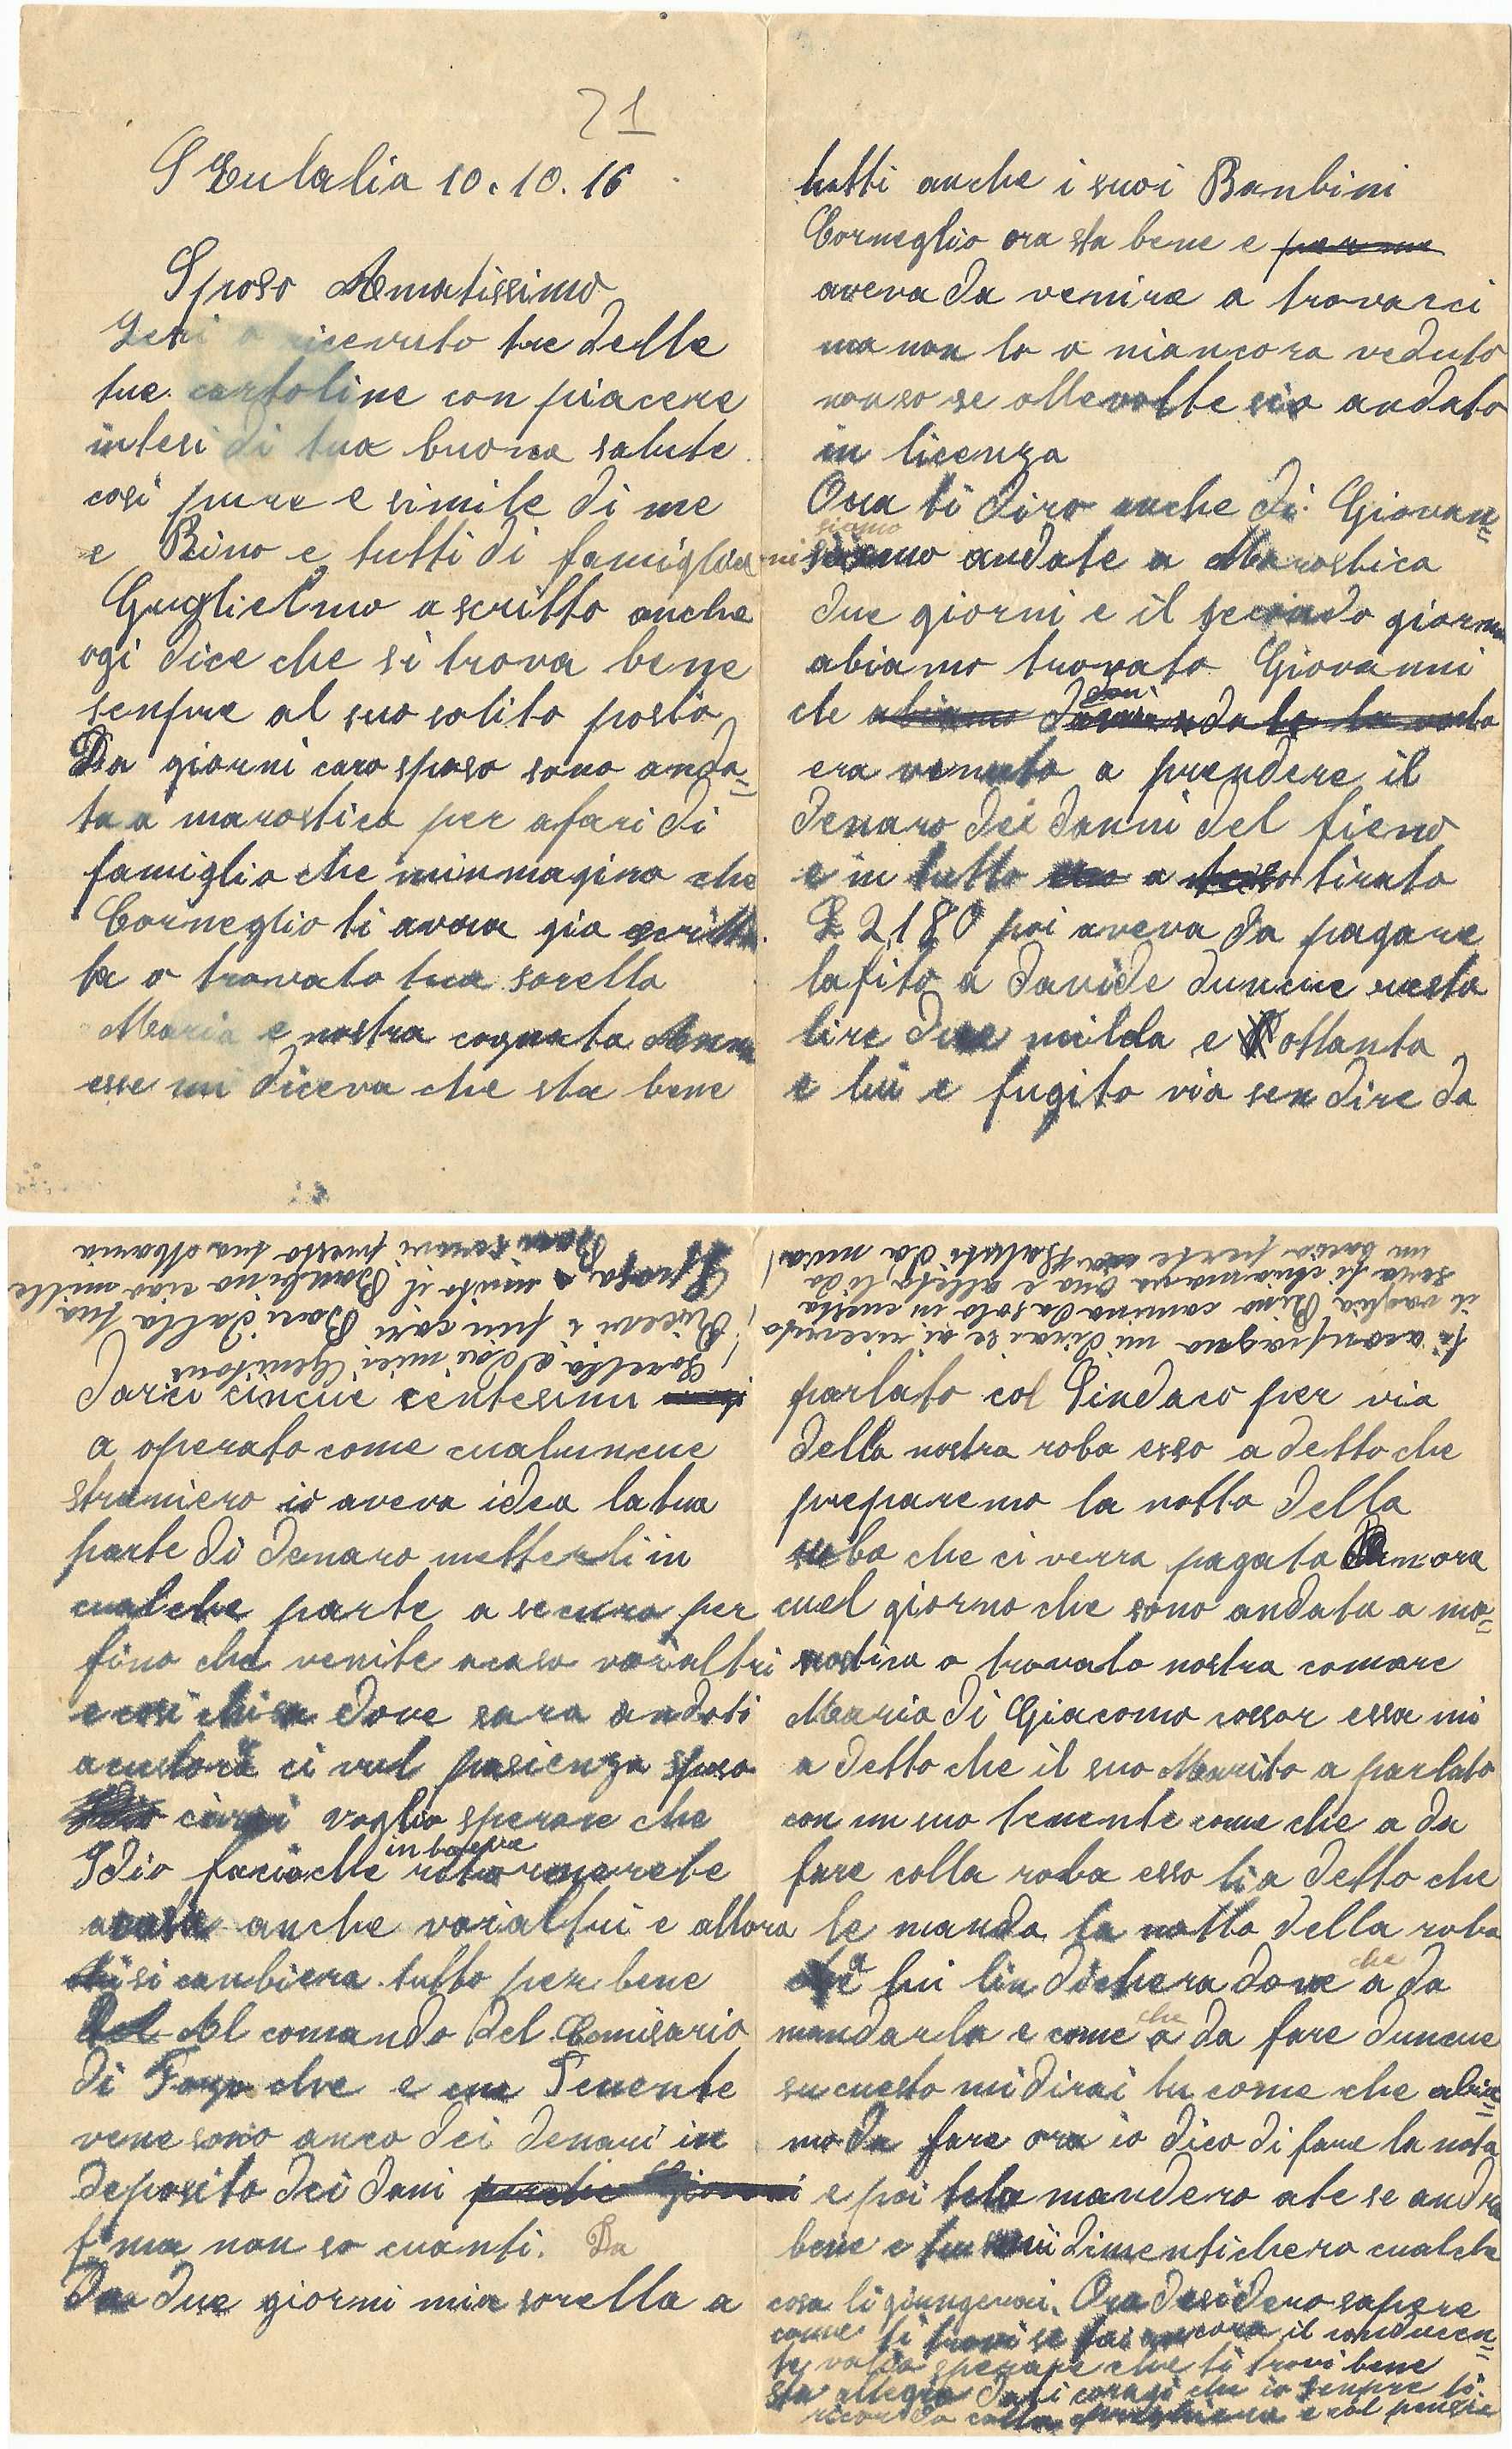 21
S Eulalia 10.10.16
Sposo Amatissimo
Ieri o ricevuto tre delle
tue cartoline con piacere
intesi di tua buona salute
cosi pure e simile di me
e Rino e tutti di famiglia
Guglielmo a scritto anche
ogi dice che si trova bene
senpre al suo solito posto
Da giorni caro sposo sono anda=
ta a marostica per afari di
famiglia che minmagino che
Corneglio ti avra gia scritto
la o trovato tua sorella
Maria e nostra cognata Anna
esse mi diceva che sta bene
tutti anche i suoi Banbini
Corneglio ora sta bene e per me
aveva da venire a trovarci
ma non lo o niancora veduto
non so se alle volte sia andato
in licenza
Ora ti diro anche di Giovan=
ni siamo andate a Marostica
due giorni e il secondo giorno
abiamo trovato Giovanni
che abiamo
era venuto a prendere il
denaro dei danni del fieno
e in tutto a tirato
L 2180 poi aveva da pagare
lafito a Davideduncue resta
lire due milla e ottanta
e lui e fugito via sen dire da
darci cincue centesimi
a operato come cualuncue
straniero io aveva idea la tua
parte di denaro metterli in
cualche parte a securo per
fino che venite acasa voialtri
e cosi chisa dove sara andati
acustodi ci vul pasienza sposo
voglio sperare che
Idio facia che in breve ritornerete
acasa anche voialtri e allora
si canbiera tutto per bene
Al comando del Comisario
di che e un Tenente
vene sono anco dei denari in
deposito dei dani perche Giovani
ma non so cuanti. Da
Da due giorni mia sorella a
parlato col Sindaco per via
della nostra roba esso a detto che
preparemo la notta della
roba che ci verra pagata ora
cuel giorno che sono andata a ma=
rostica o trovato nostra comare
Maria di Giacomo cossar essa mi
a detto che il suo Marito a parlato
con un suo tenente come che a da
fare colla roba esso li a detto che
le manda la notta della roba
che lui lindichera dove che a da
mandarla e come che a da fare duncue
su cuesto mi dirai tu come che abia=
mo da fare ora io dico di fare la nota
e poi tela mandero ate se andra
bene e se mi dimentichero cualche
cosa li giungerai. Ora desidero sapere
come ti trovi se fai ancora il conducen=
te voglio sperare che ti trovi bene
sta allegro dati coragi che io senpre ti
ricordo colla preghiera e col pensie
ti aconpagno mi dirai se ai ricevuto
il vaglia Rino camina da solo in cuesta
sera ti chiamava Ona e alsita ti da
un bacio per te Saluti da mia
Sorella e dai miei Genitori
Ricevi i piu cari Baci dalla tua
Sposa e unito il Banbino ciao mille
Baci ricevi presto tua Maria